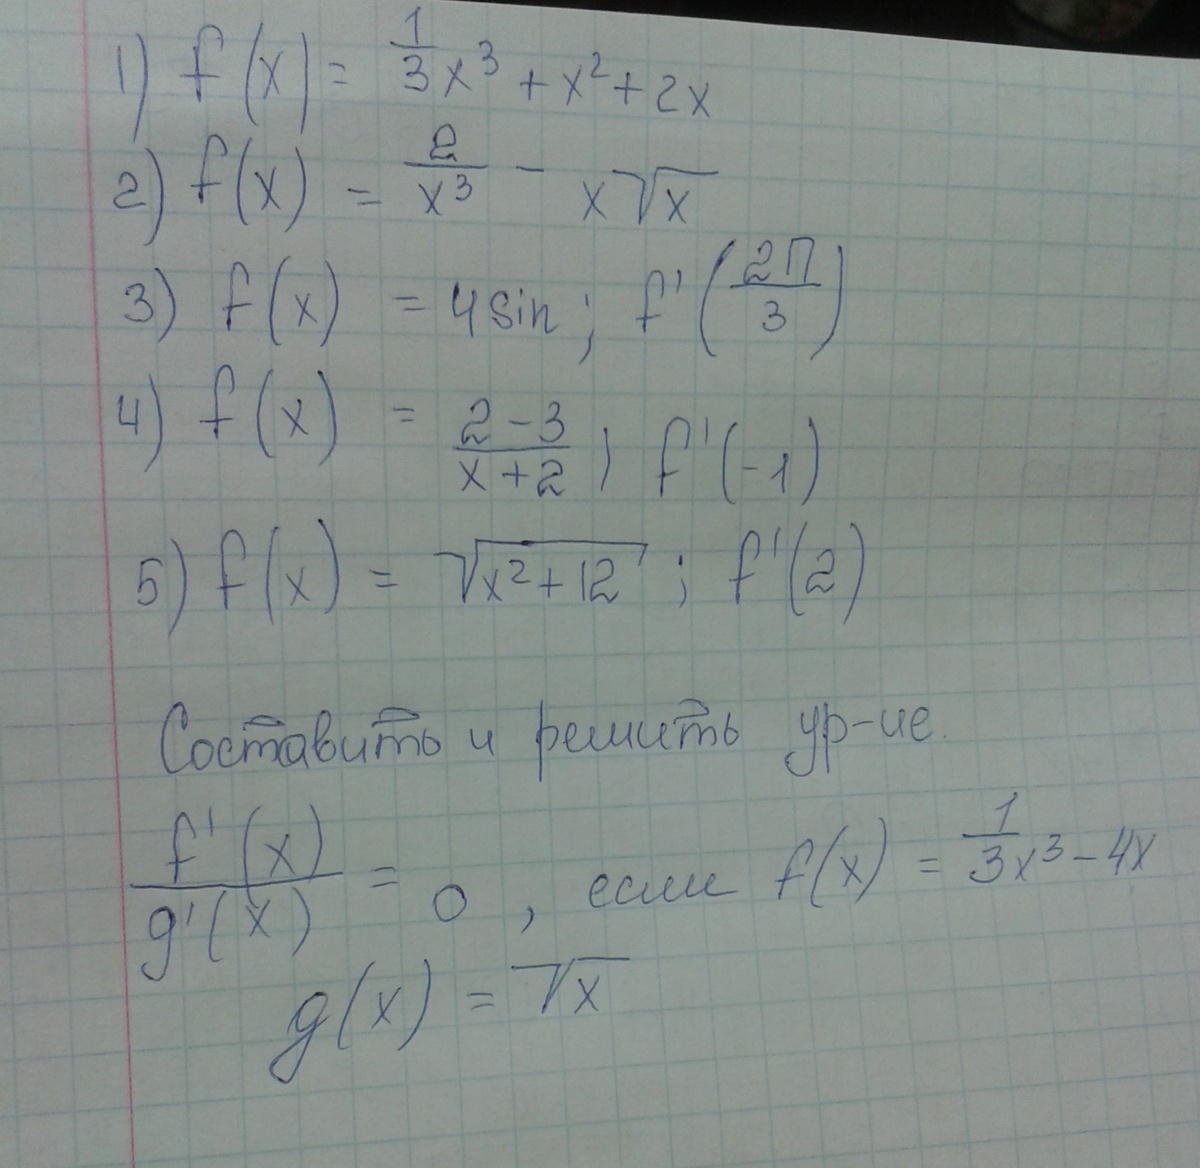 1) f(x) = 1/3 x³ + x² + 2x
2) f(x) = 2/x³ - x√x
3) f(x) = 4 sin; f'(2П/3)
4) f(x) = (2-3)/(x+2) ; f'(-1)
5) f(x) = √(x²+12) ; f'(2)
Составить и решить ур-ие.
f'(x)/g'(x) = 0, если f(x) = 1/3 x³ - 4x
g(x) = √x